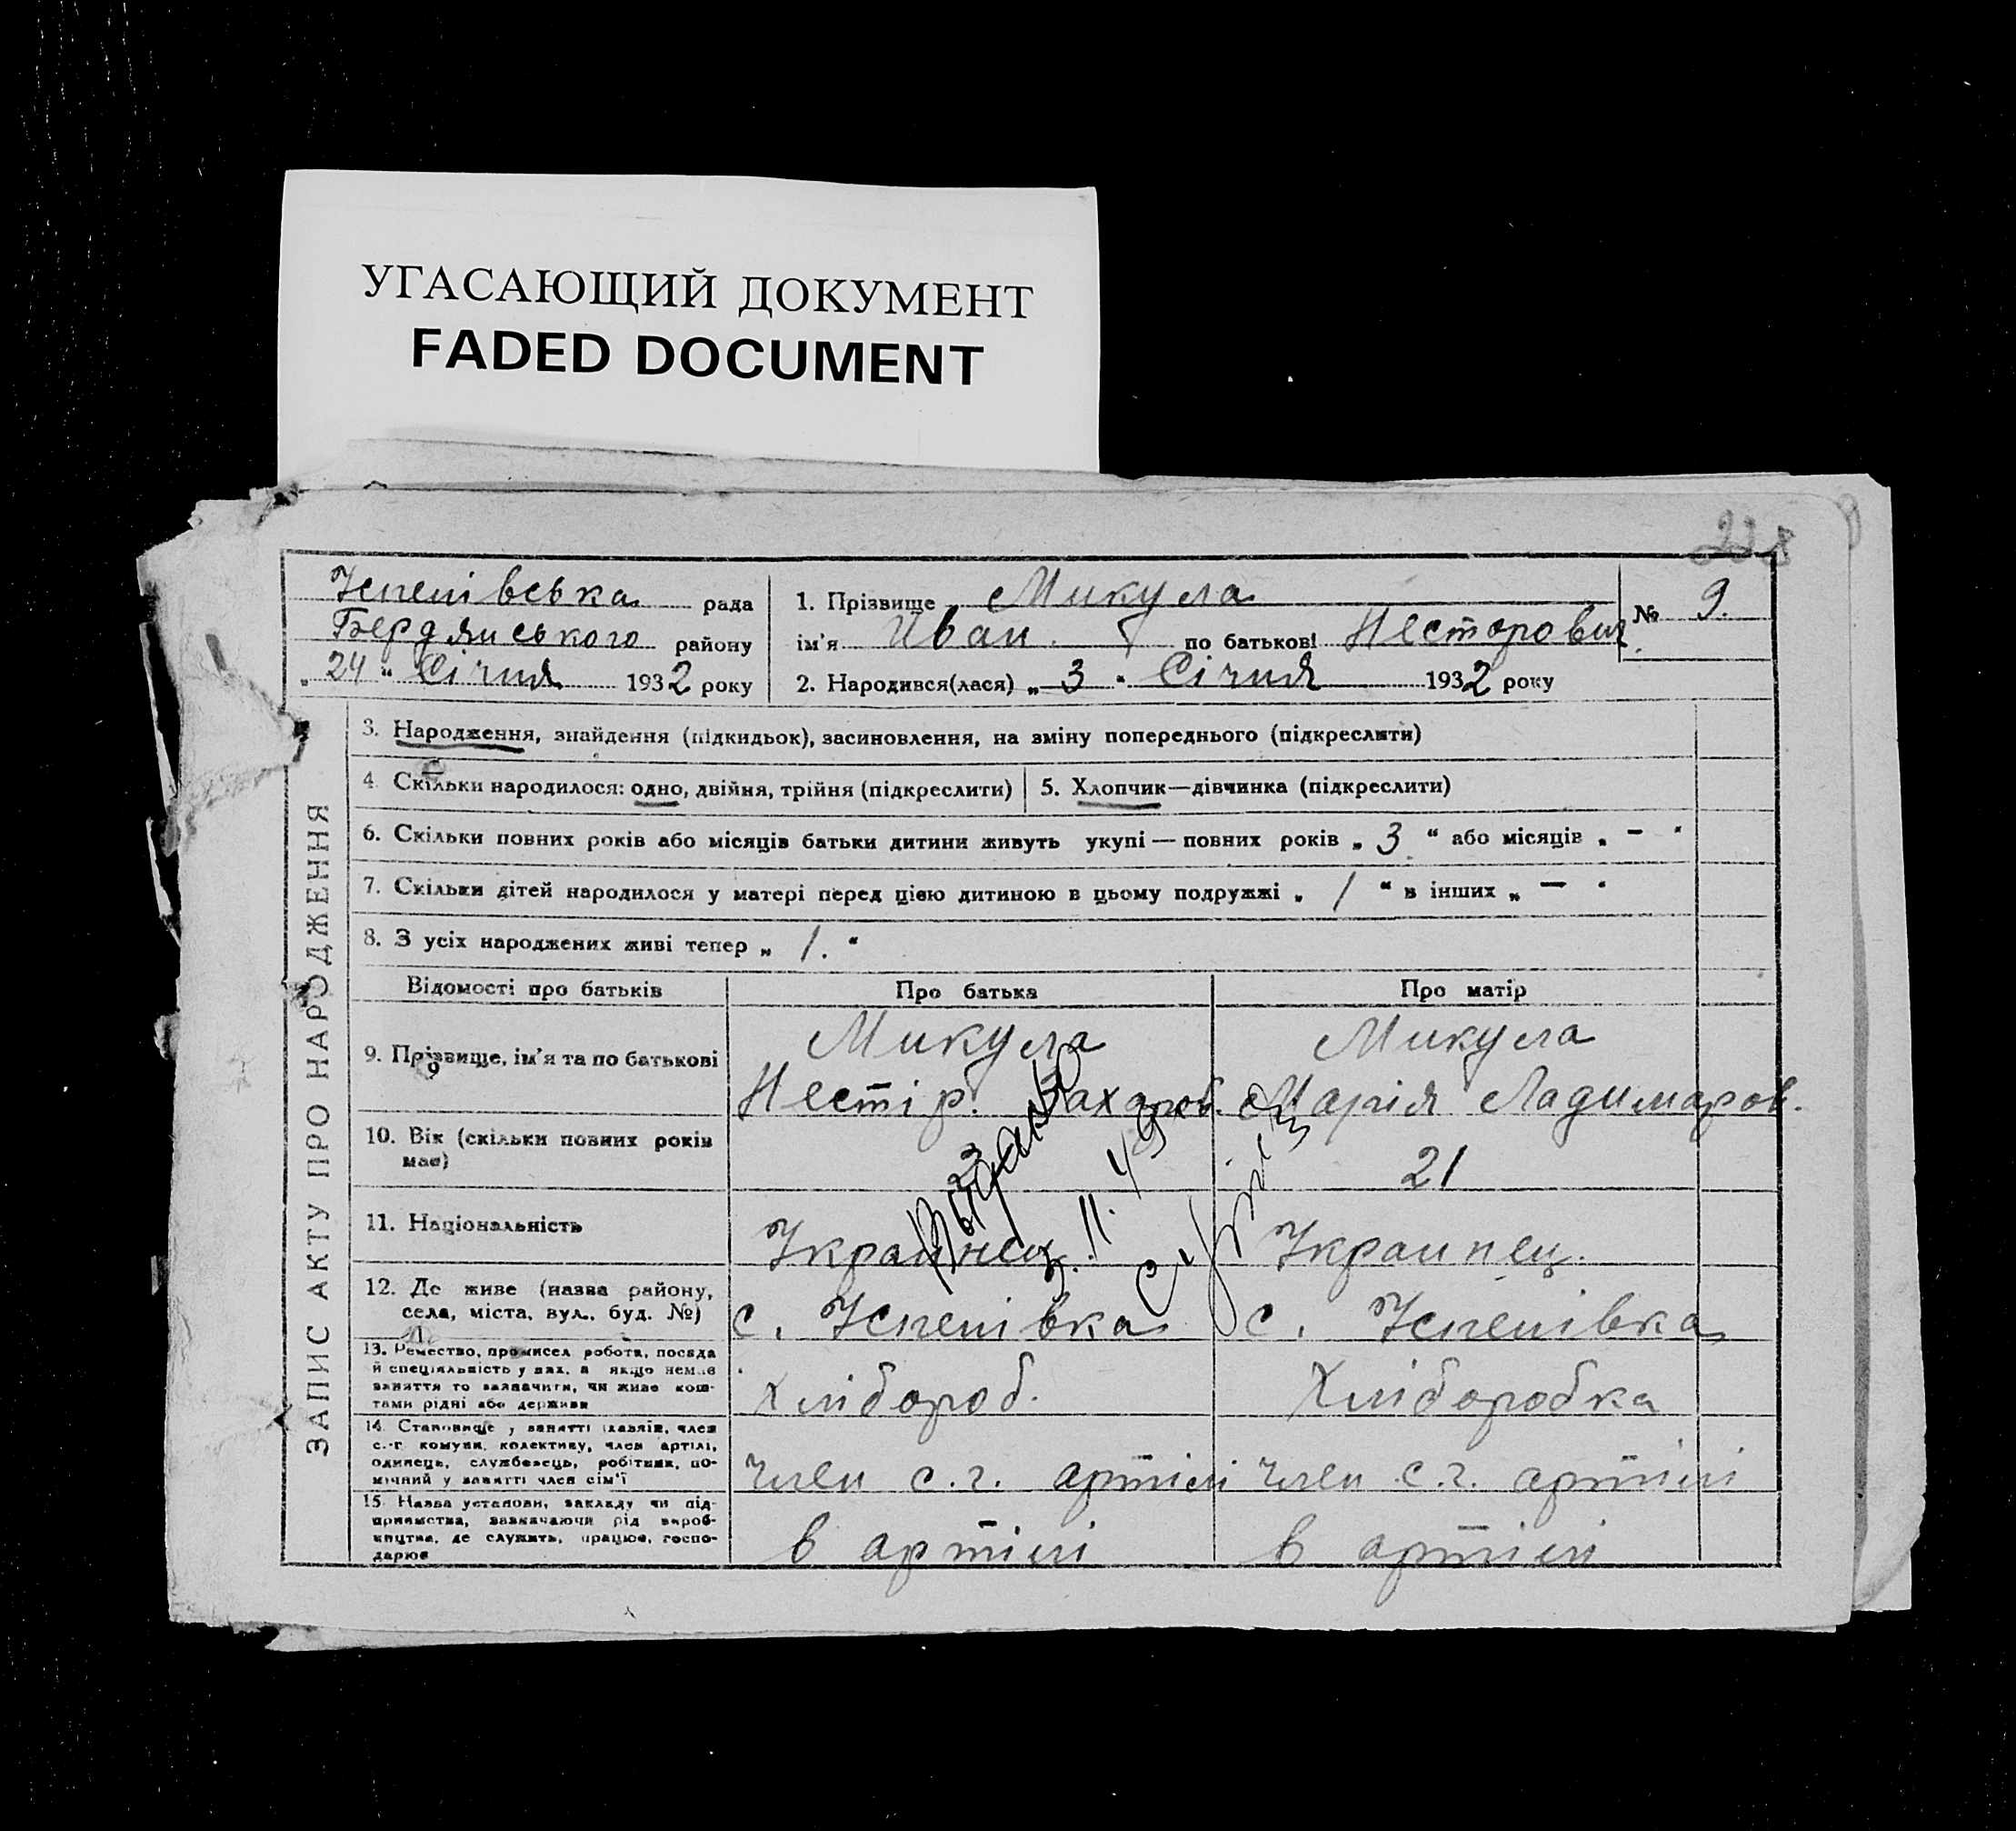 УГАСАЮЩИЙ ДОКУМЕНТ
FADED DOCUMENT
Успенівська рада
Бердянського району
„ 24 “ Січня 1932 року
1. Прізвище Микула
ім'я Иван по батькові Несторович
2. Народився(лася) „ 3 “ Січня 1932 року
№ 9.
ЗАПИС АКТУ ПРО НАРОДЖЕННЯ
3. Народження, знайдення (підкидьок), засиновлення, на зміну попереднього (підкреслити)
4. Скільки народилося: одно, двійня, трійня (підкреслити)
5. Хлопчик—дівчинка (підкреслити)
6. Скільки повних років або місяців батьки дитини живуть укупі — повних років „ 3 “ або місяців „ – “
7. Скільки дітей народилося у матері перед цією дитиною в цьому подружжі „ 1 “ в інших „ – “
8. З усіх народжених живі тепер „ 1. “
Відомості про батьків Про батька Про матір
9. Прізвище, ім'я та по батькові
Микула
Нестір. Захаров.
Микула
Марія Ладимаров.
10. Вік (скільки повних років має)
23
21
11. Національність
Украинец.
Украинец.
12. Де живе (назва району,
села, міста, вул., буд. №)
с. Успенівка
с. Успенівка
13. Ремество, промисел робота, посада
й спеціяльність у них, а якщо немає
заняття то зазначити, чи живе кош-
тами рідні або держави
Хлібороб.
Хліборобка
14. Становище у занятті (хазяїн, член
с.-г. комуни, колективу, член артілі,
одинець, службовець, робітник, по-
мічний у занятті член сім'ї
член с.г. артілі
член с.г. артілі
15. Назва установи, закладу чи під-
приємства, зазначаючи рід вироб-
ництва, де служить, працює, госпо-
дарює
в артілі
в артілі